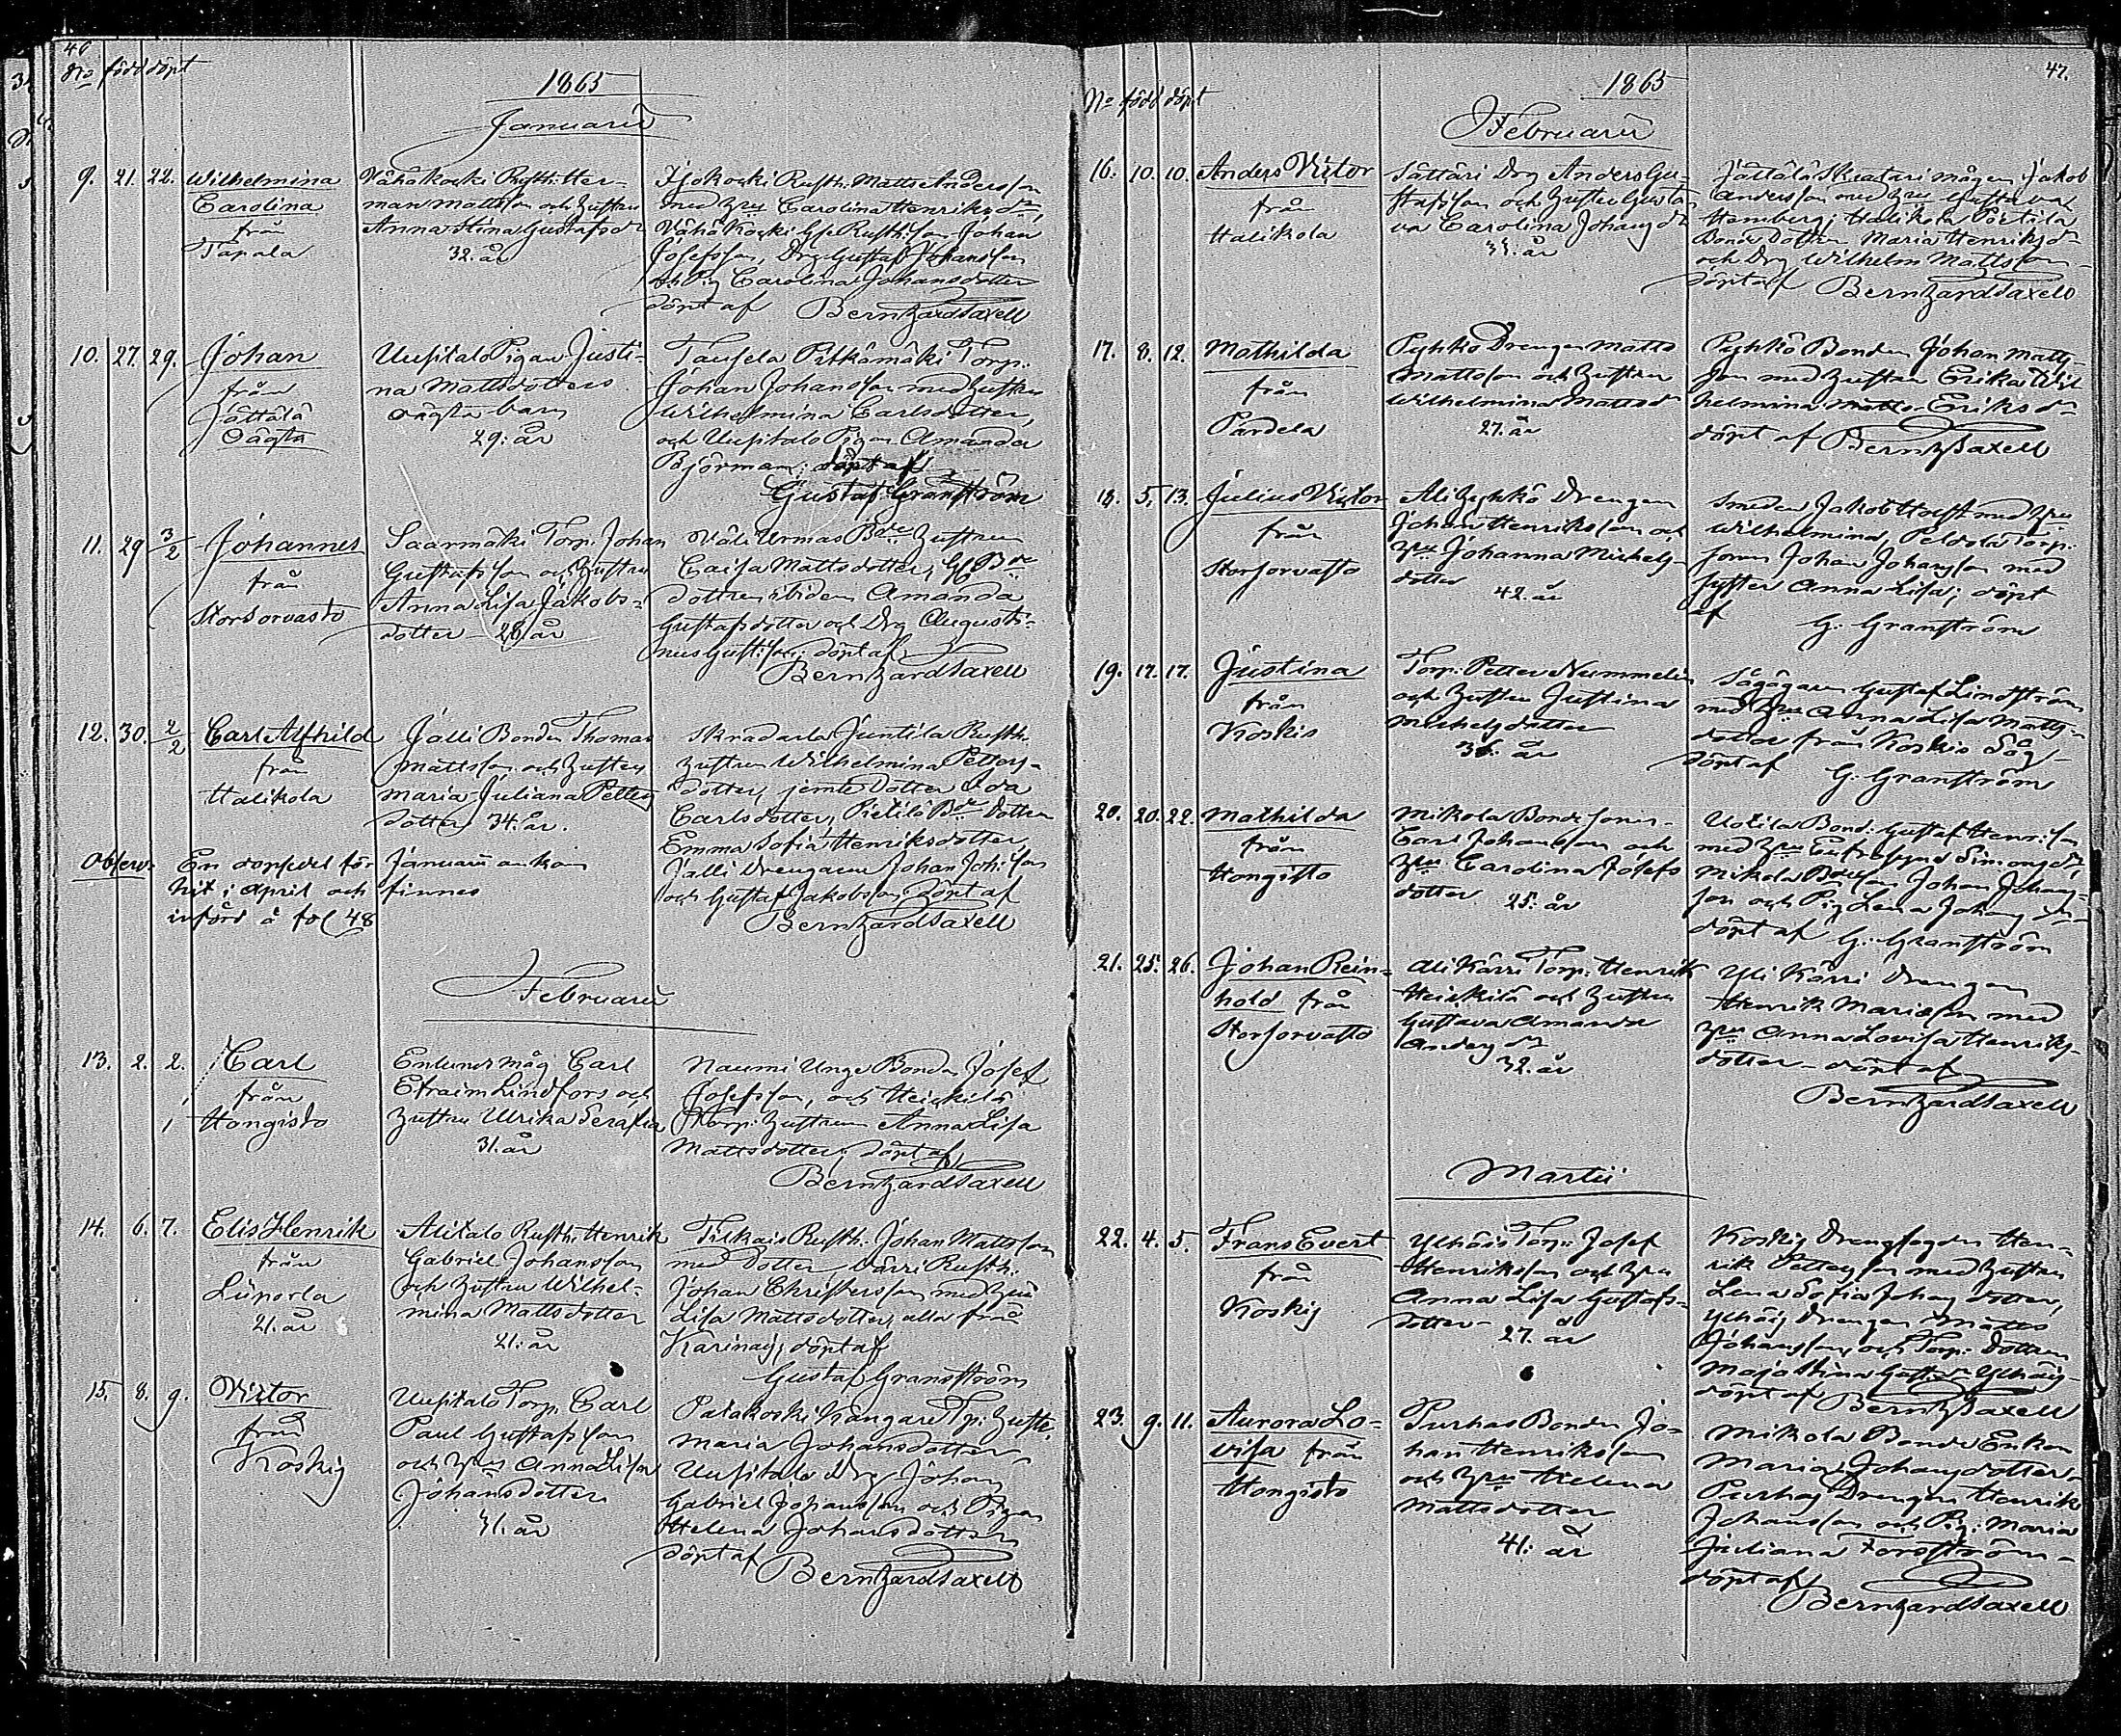 46
No född döpt
1865
Januarii
9. 21. 22. Wilhelmina
Carolina
från
Tapala
Vähäkoski Rusth. Her-
man Mattsson och hustru
Anna Stina Gustafsdr
32. år
Isokoski Rusth. Matts Andersson
med hru Carolina Henriksdr,
Johan
Josefsson, Drg. Gustaf Johansson
och Pig Carolina Johansdotter
döpt af Bernhard Saxell
10. 27. 29. Johan
från
Jättälä
oägta
Uusitalo Pigan Justi-
na Mattsdotters
oägta barn
29. år
Pitkämäki Torp.
Johan Johansson med hustru
Wilhelmina Carlsdotter,
och Uusitalo Pigan Amanda
Björman; döpt af
Gustaf Granström
11. 29 3/2 Johannes
från
Storsorvasto
Saarmäki Torp. Johan
Gustafsson och hustru
Anna Lisa Jakobs-
dotter 28 år
Väli Urmas Bde hustrun
Caisa Mattsdotter,
dottren ibidem Amanda
Gustafsdotter och Drg Augusti-
nus Gust:son; döpt af
Bernhard Saxell
12. 30. 2/2 Carl Alfhild
från
Halikola
Jälli Bonden Thomas
Mattsson och hustru
Maria Juliana Petters
dotter 34. år.
Skradarla Juntila Rusth.
hustrun Wilhelmina Petters-
dotter, jemte dotter Ida
Carlsdotter, Pietilä Bde dottren
Emma Sofia Henriksdotter
Jälli Drengarne Johan Joh:son
och Gustaf Jakobsson, döpt af
Bernhard Saxell
Observ: En dopsedel för Januarii ankom
hit i April och finnes
införd å fol 48
Februarii
13. 2. 2. Carl
från
Hongisto
Enlunds måg Carl
Efraim Lindfors och
hustru Ulrika Serafia
31. år
Naumi Unge Bonden Josef
Josefsson, och Heickilä
Torp. hustrun Anna Lisa
Mattsdotter; döpt af
Bernhard Saxell
14. 6. 7. Elis Henrik
från
21. år
Alitalo Rusth. Henrik
Gabriel Johansson
och hustru Wilhel-
mina Mattsdotter
21. år
Tiskais Rusth. Johan Mattsson
med dotter Rusth.
Johan Christersson med hru
Lisa Mattsdotter, alla från
Karinais; döpt af
Gustaf Granström
15. 8. 9. Victor
från
Koskis
Uusitalo Torp. Carl
Paul Gustafsson
och hru Anna Lisa
Johansdotter
31. år
Palakoski Kangare Tp: hustr.
Maria Johansdotter
Uusitalo Drg Johan
Gabriel Johansson och Pigan
Helena Johansdotter
döpt af Bernhard Saxell
47.
No född döpt
1865
Februarii
16. 10. 10. Anders Victor
från
Halikola
Sättäri Drg Anders Gu-
stafsson och hustru Gusta-
va Carolina Johansdr
33. år
Jättälä Skratari mågen Jakob
Andersson med hru Gustava
Hemberg; Halikola Pertila
Bonde Dottren Maria Henriksdr
och Drg Wilhelm Mattsson
döpt af Bernhard Saxell
17. 8. 12. Mathilda
från
Pardela
Pyhkö Drengen Matts
Mattsson och hustrun
Wilhelmina Mattsdr
27. år
Pyhkö Bonden Johan Matts-
son med hustru Erika Wil
helmina Eriksdr
döpt af Bernh Saxell
18. 5. 13. Julius Victor
från
Storsorvasto
Ali Pyhkö Drengen
Johan Henriksson och
hru Johanna Michels-
dotter
42. år
Smeden Jakob med hru
Wilhelmina, Peldola Torp.
sonen Johan Johansson med
syster Anna Lisa; döpt
af G. Granström
19. 17. 17. Justina
från
Koskis
Torp. Petter Nummelin
och hustru Justina
Michelsdotter
36. år
Sågägaren Gustaf Lindström
med hru Anna Lisa Matts-
dotter från Koskis Såg-
döpt af G. Granström
20. 20. 22. Mathilda
från
Hongisto
Mikola Bonde sonen
Carl Johansson och
hru Carolina Josefs
dotter 25. år
Uotila Bond. Gustaf Henr:son
med hru Eufrosyne Simonsdr,
Mikola Bdeson Johan Johans-
son och Pig Lena Johansdr
döpt af G. Granström
21. 25. 26. Johan Rein-
hold från
Storsorvasto
Ali Kärri Torp. Henrik
Heickilä och hustru
Gustava Amanda
Andersdr
32. år
Yli Kärri Drengen
Henrik Mariason med
hru Anna Lovisa Henriks-
dotter - döpt af
Bernhard Saxell
Martii
22. 4. 5. Frans Evert
från
Koskis
Ylhäis Torp. Josef
Henriksson och hru
Anna Lisa Gustafs-
dotter-
27. år
Koskis Drengfogden Hen-
rik Pettersson med hustru
Lena Sofia Johansdotter,
Ylhäis Drengen Matts
Johansson, och Torp. Dottren
Maja Stina Ylhäis
döpt af Bernh Saxell
23. 9. 11. Aurora Lo-
visa från
Hongisto
Purhas Bonden Jo-
han Henriksson
och hru Helena
Mattsdotter
41. år
Mikola Bonde Enkan
Maria Johansdotter-
Purhas Drengen Henrik
Johansson och Pig. Maria
Juliana Forsström-
döpt af
Bernhard Saxell